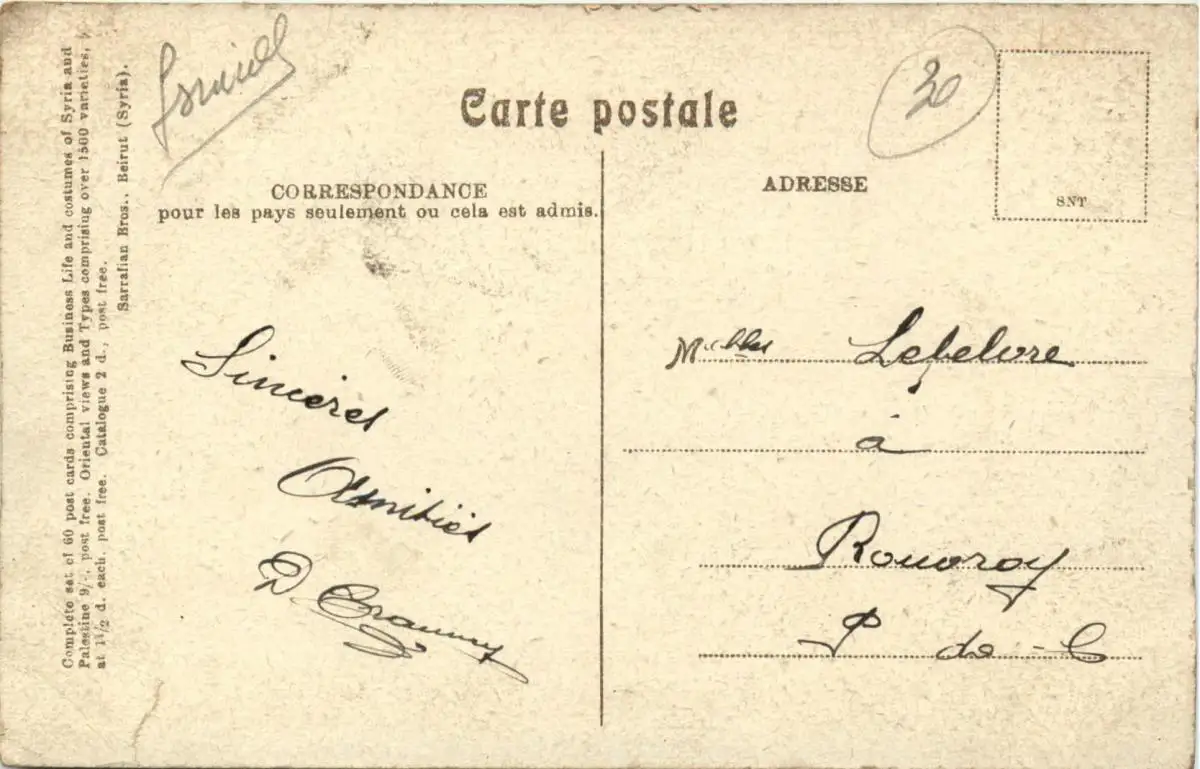 Carte postale
30
SNT
CORRESPONDANCE
pour les pays seulement ou cela est admis.
ADRESSE
Complete set of 60 post cards comprising Business Life and costumes of Syria and
Palestine 9/-. post free. Oriental views and Types comprising over 1500 varieties,
at 1 1/2 d. each. post free. Catalogue 2 d., post free.
Sarrafian Bros., Beirut (Syria).
Sincères
Amitiés
D
Lefebvre
à
Rouvroy
P de-C